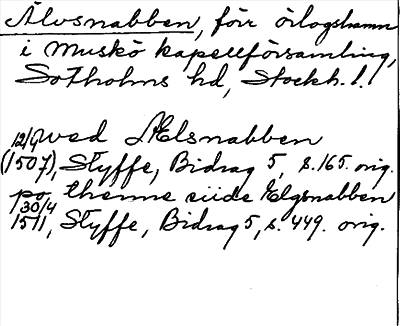 Älvsnabben, förr örlogshamn
i Muskö kapellförsamling,
Sotholms hd, Stockh. l.
12/9 wed Ælsnabben
(1507), Styffe, Bidrag 5, s. 165. orig.
po thenne siide Elgsnabben
1/30/4
1511, Styffe, Bidrag 5, s. 449. orig.